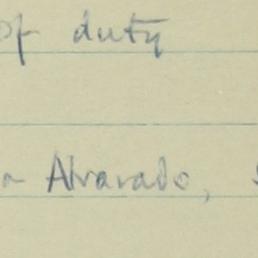 of duty
Alvarado,